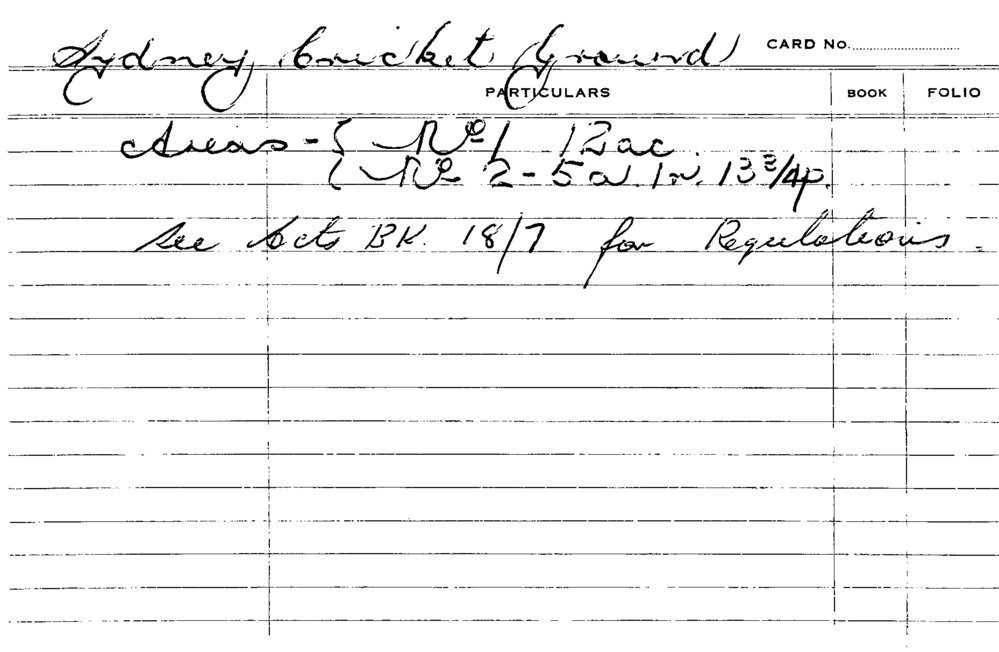 Sydney Cricket Ground CARD No.
PARTICULARS BOOK FOLIO
Areas - { No 1 12ac.
{ No 2 - 5a. 1r. 13 3/4p.
See Acts BK. 18/7 for Regulations.